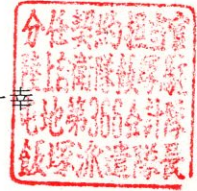 分任契約担当官
陸上自衛隊飯塚駐
屯地第366会計隊
飯塚派遣隊長
幸